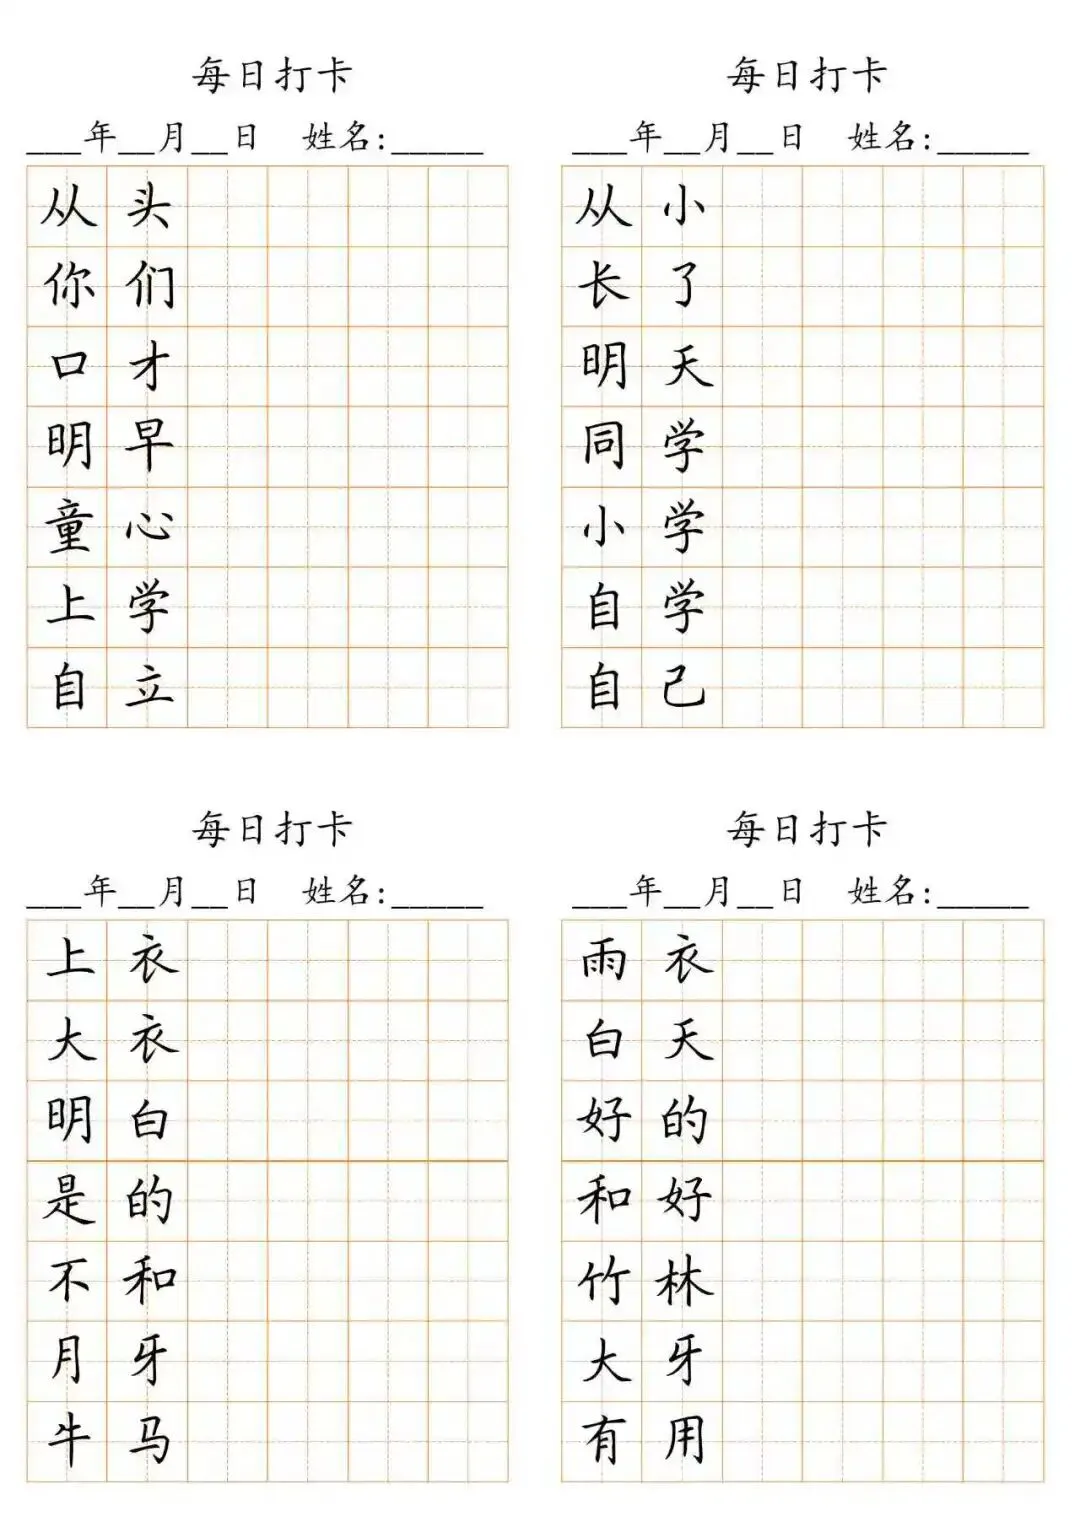 每日打卡
___年__月__日 姓名:_____
从头
你们
口才
明早
童心
上学
自立
每日打卡
___年__月__日 姓名:_____
从小
长了
明天
同学
小学
自学
自己
每日打卡
___年__月__日 姓名:_____
上衣
大衣
明白
是的
不和
月牙
牛马
每日打卡
___年__月__日 姓名:_____
雨衣
白天
好的
和好
竹林
大牙
有用